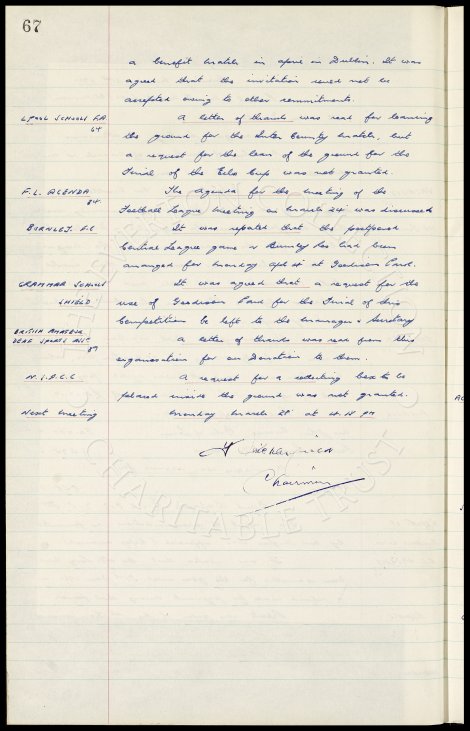 67
a benefit match in April in Dublin. It was
agreed that the invitation could not be
accepted owing to other commitments.
L'pool Schools F.A. A letter of thanks was read for loaning
64 the ground for the Inter County match, but
a request for the loan of the ground for the
Final of the Echo Cup was not granted.
F.L. AGENDA The Agenda for the meeting of the
84. Football League meeting on March 24 was discussed
BURNLEY. F.C. It was reported that the postponed
Central League game v Burnley had been
arranged for Monday at Goodison Park.
GRAMMAR SCHOOLS It was agreed that a request for the
SHIELD use of Goodison Park for the Final of this
Competition be left to the Manager & Secretary
BRITISH AMATEUR
DEAF SPORTS ASS. A letter of thanks was read from this
89 organisation for our Donation to them.
N.S.P.C.C A request for a collecting box to be
placed inside the ground was not granted.
Next Meeting Monday March 28 at PM
Chairman
CHARITABLE TRUST